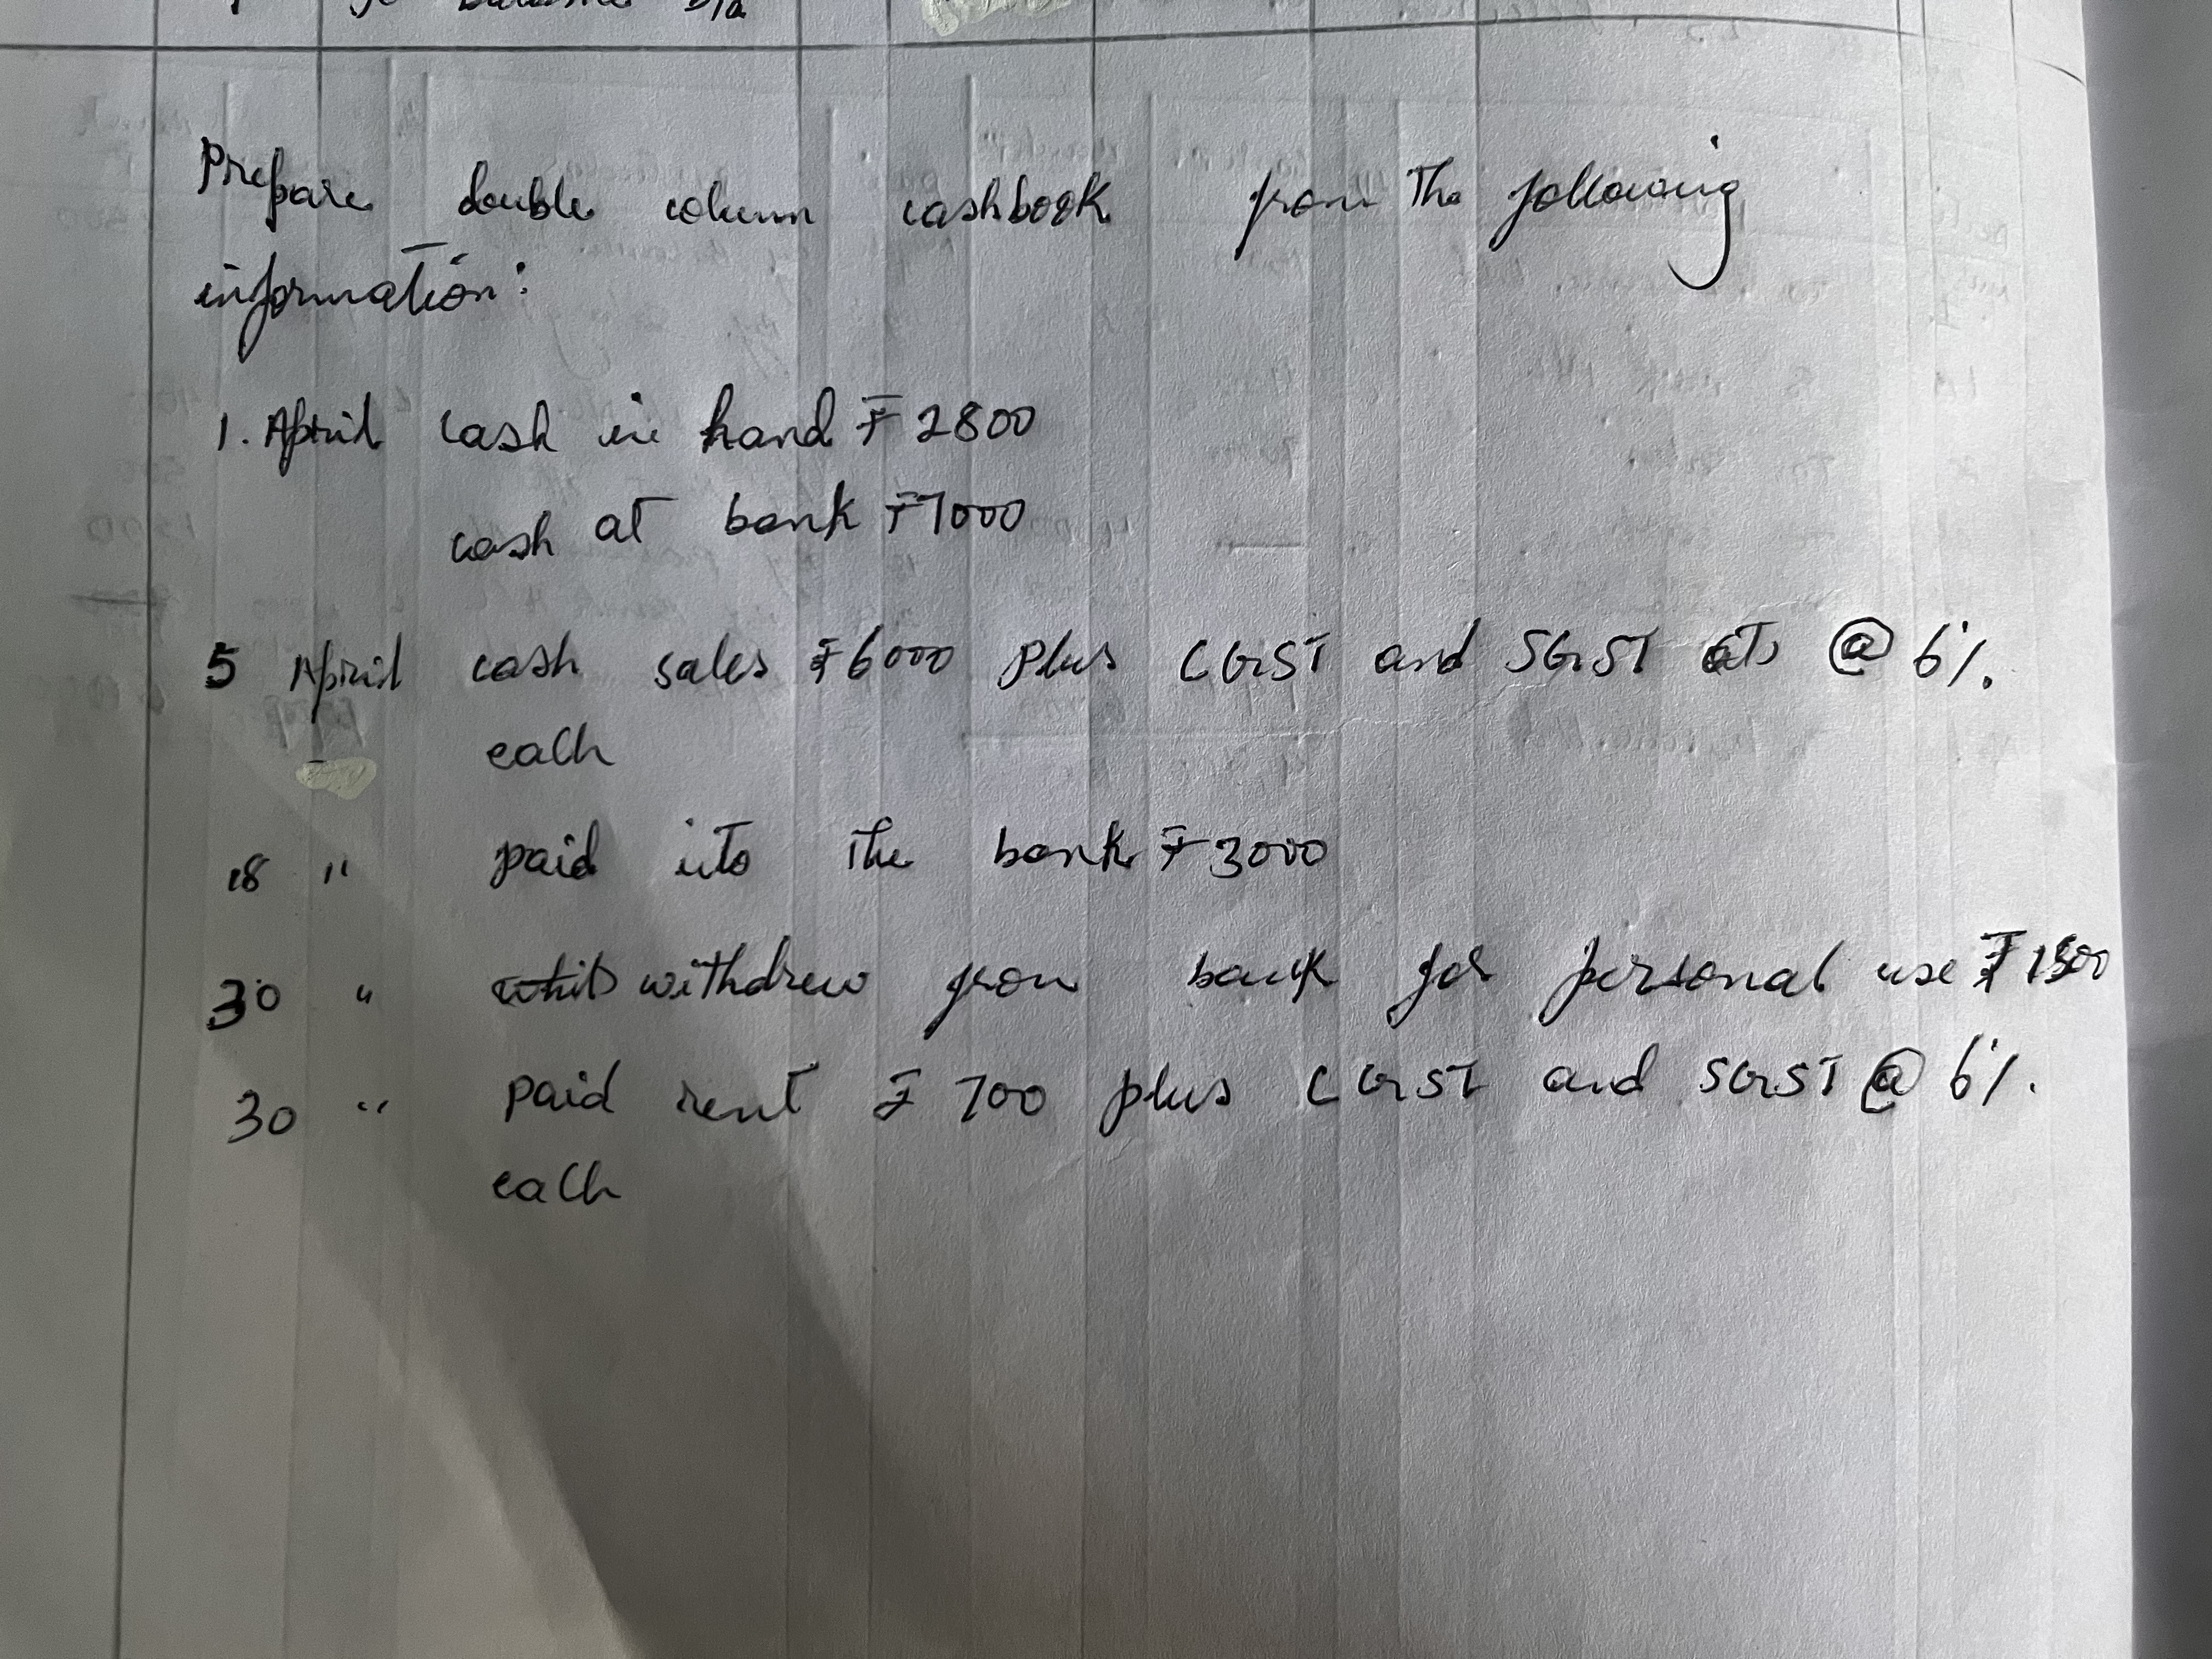 To balance b/d
Prepare double column cashbook from the following
information:
1. April cash in hand ₹ 2800
cash at bank ₹7000
5 April cash sales ₹6000 plus CGST and SGST @ 6%.
each
18 " paid into the bank ₹ 3000
30 " withdrew from bank for personal use ₹
30 " paid rent ₹ 700 plus CGST and SGST @ 6%.
each